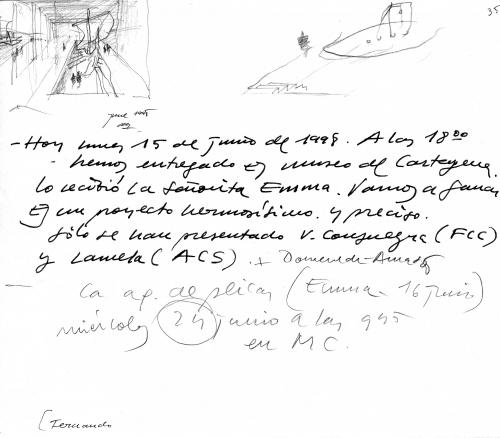 35
- Hoy lunes 15 de junio de 1998. A las 18⁰⁰
- hemos entregado el museo de Cartagena.
Lo recibió la Señorita Emma. Vamos a ganar
Es un proyecto hermosísimo. y preciso.
Sólo se han presentado V. Consuegra (FCC)
y Lamela (ACS). + Domenech-Amadó
— La ap. de plicas (Emma 16 junio)
miércoles 24 junio a las 9⁴⁵
en M C.
(Fernando